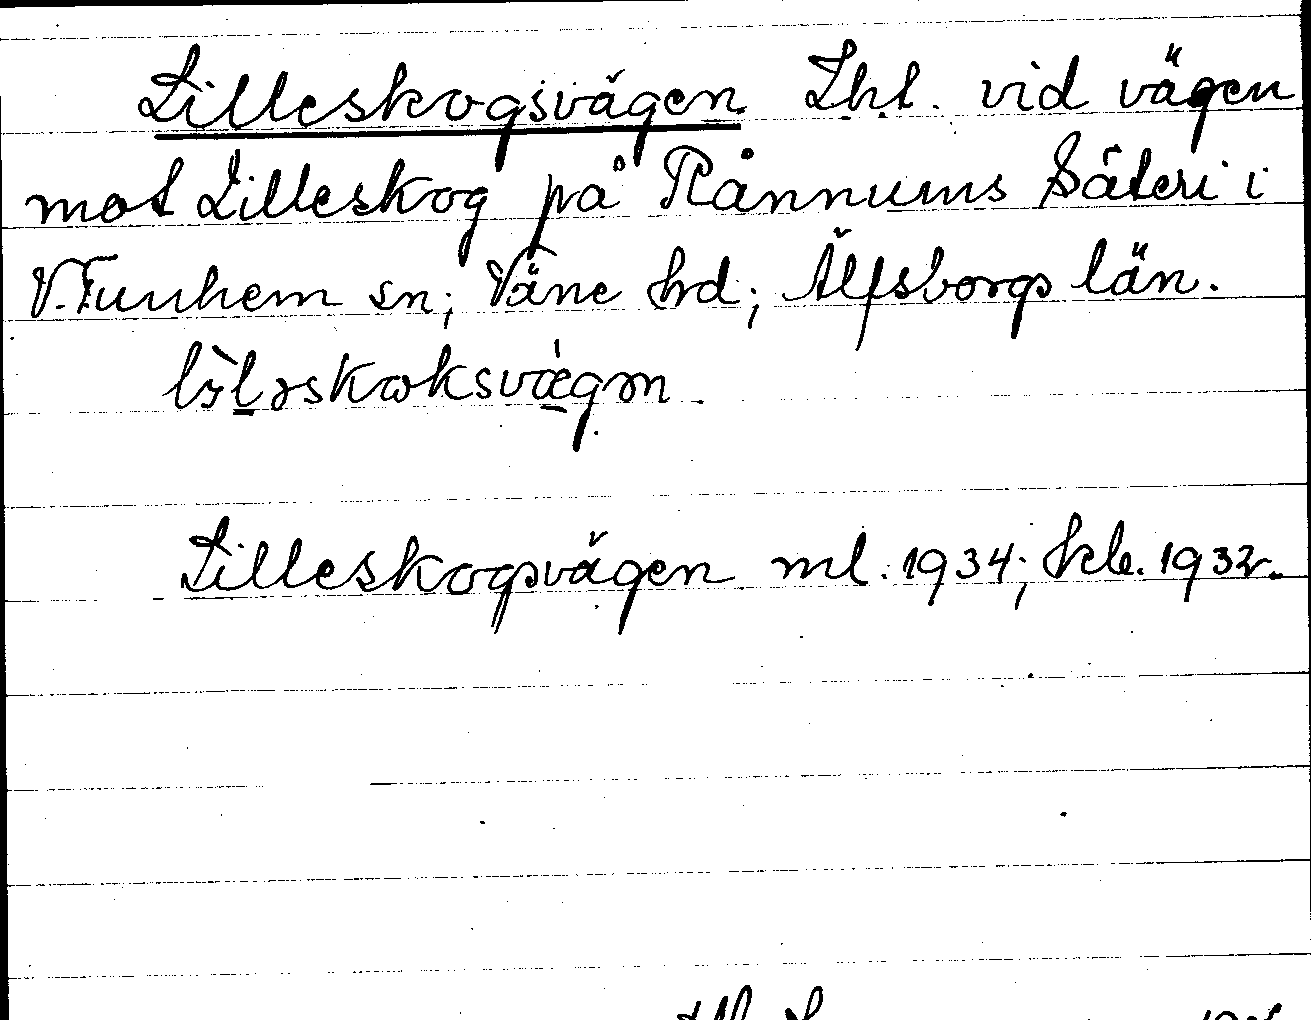 Lilleskogsvägen Lht. vid vägen
mot Lilleskog på Rånnums Säteri i
V. Tunhem sn; Väne hd; Älfsborgs län.
Lilleskogsvägen ml. 1934; kb. 1932.